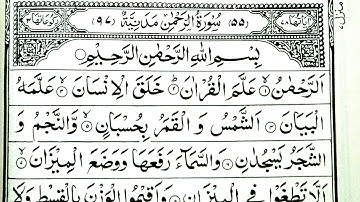 اٰيَاتُهَا ٧٨ (٥٥) سُوْرَةُ الرَّحْمٰنِ مَدَنِيَّةٌ (٩٧) رُكُوْعَاتُهَا ٣
بِسْمِ اللّٰهِ الرَّحْمٰنِ الرَّحِيْمِ
اَلرَّحْمٰنُ ۙ عَلَّمَ الْقُرْاٰنَ ؕ خَلَقَ الْاِنْسَانَ ۙ عَلَّمَهُ
الْبَيَانَ ۴ اَلشَّمْسُ وَ الْقَمَرُ بِحُسْبَانٍ ۙ وَّالنَّجْمُ وَ
الشَّجَرُ يَسْجُدٰنِ ۶ وَالسَّمَآءَ رَفَعَهَا وَوَضَعَ الْمِيْزَانَ ۙ
اَلَّا تَطْغَوْا فِي الْمِيْزَانِ ۸ وَاَقِيْمُوا الْوَزْنَ بِالْقِسْطِ وَلَا